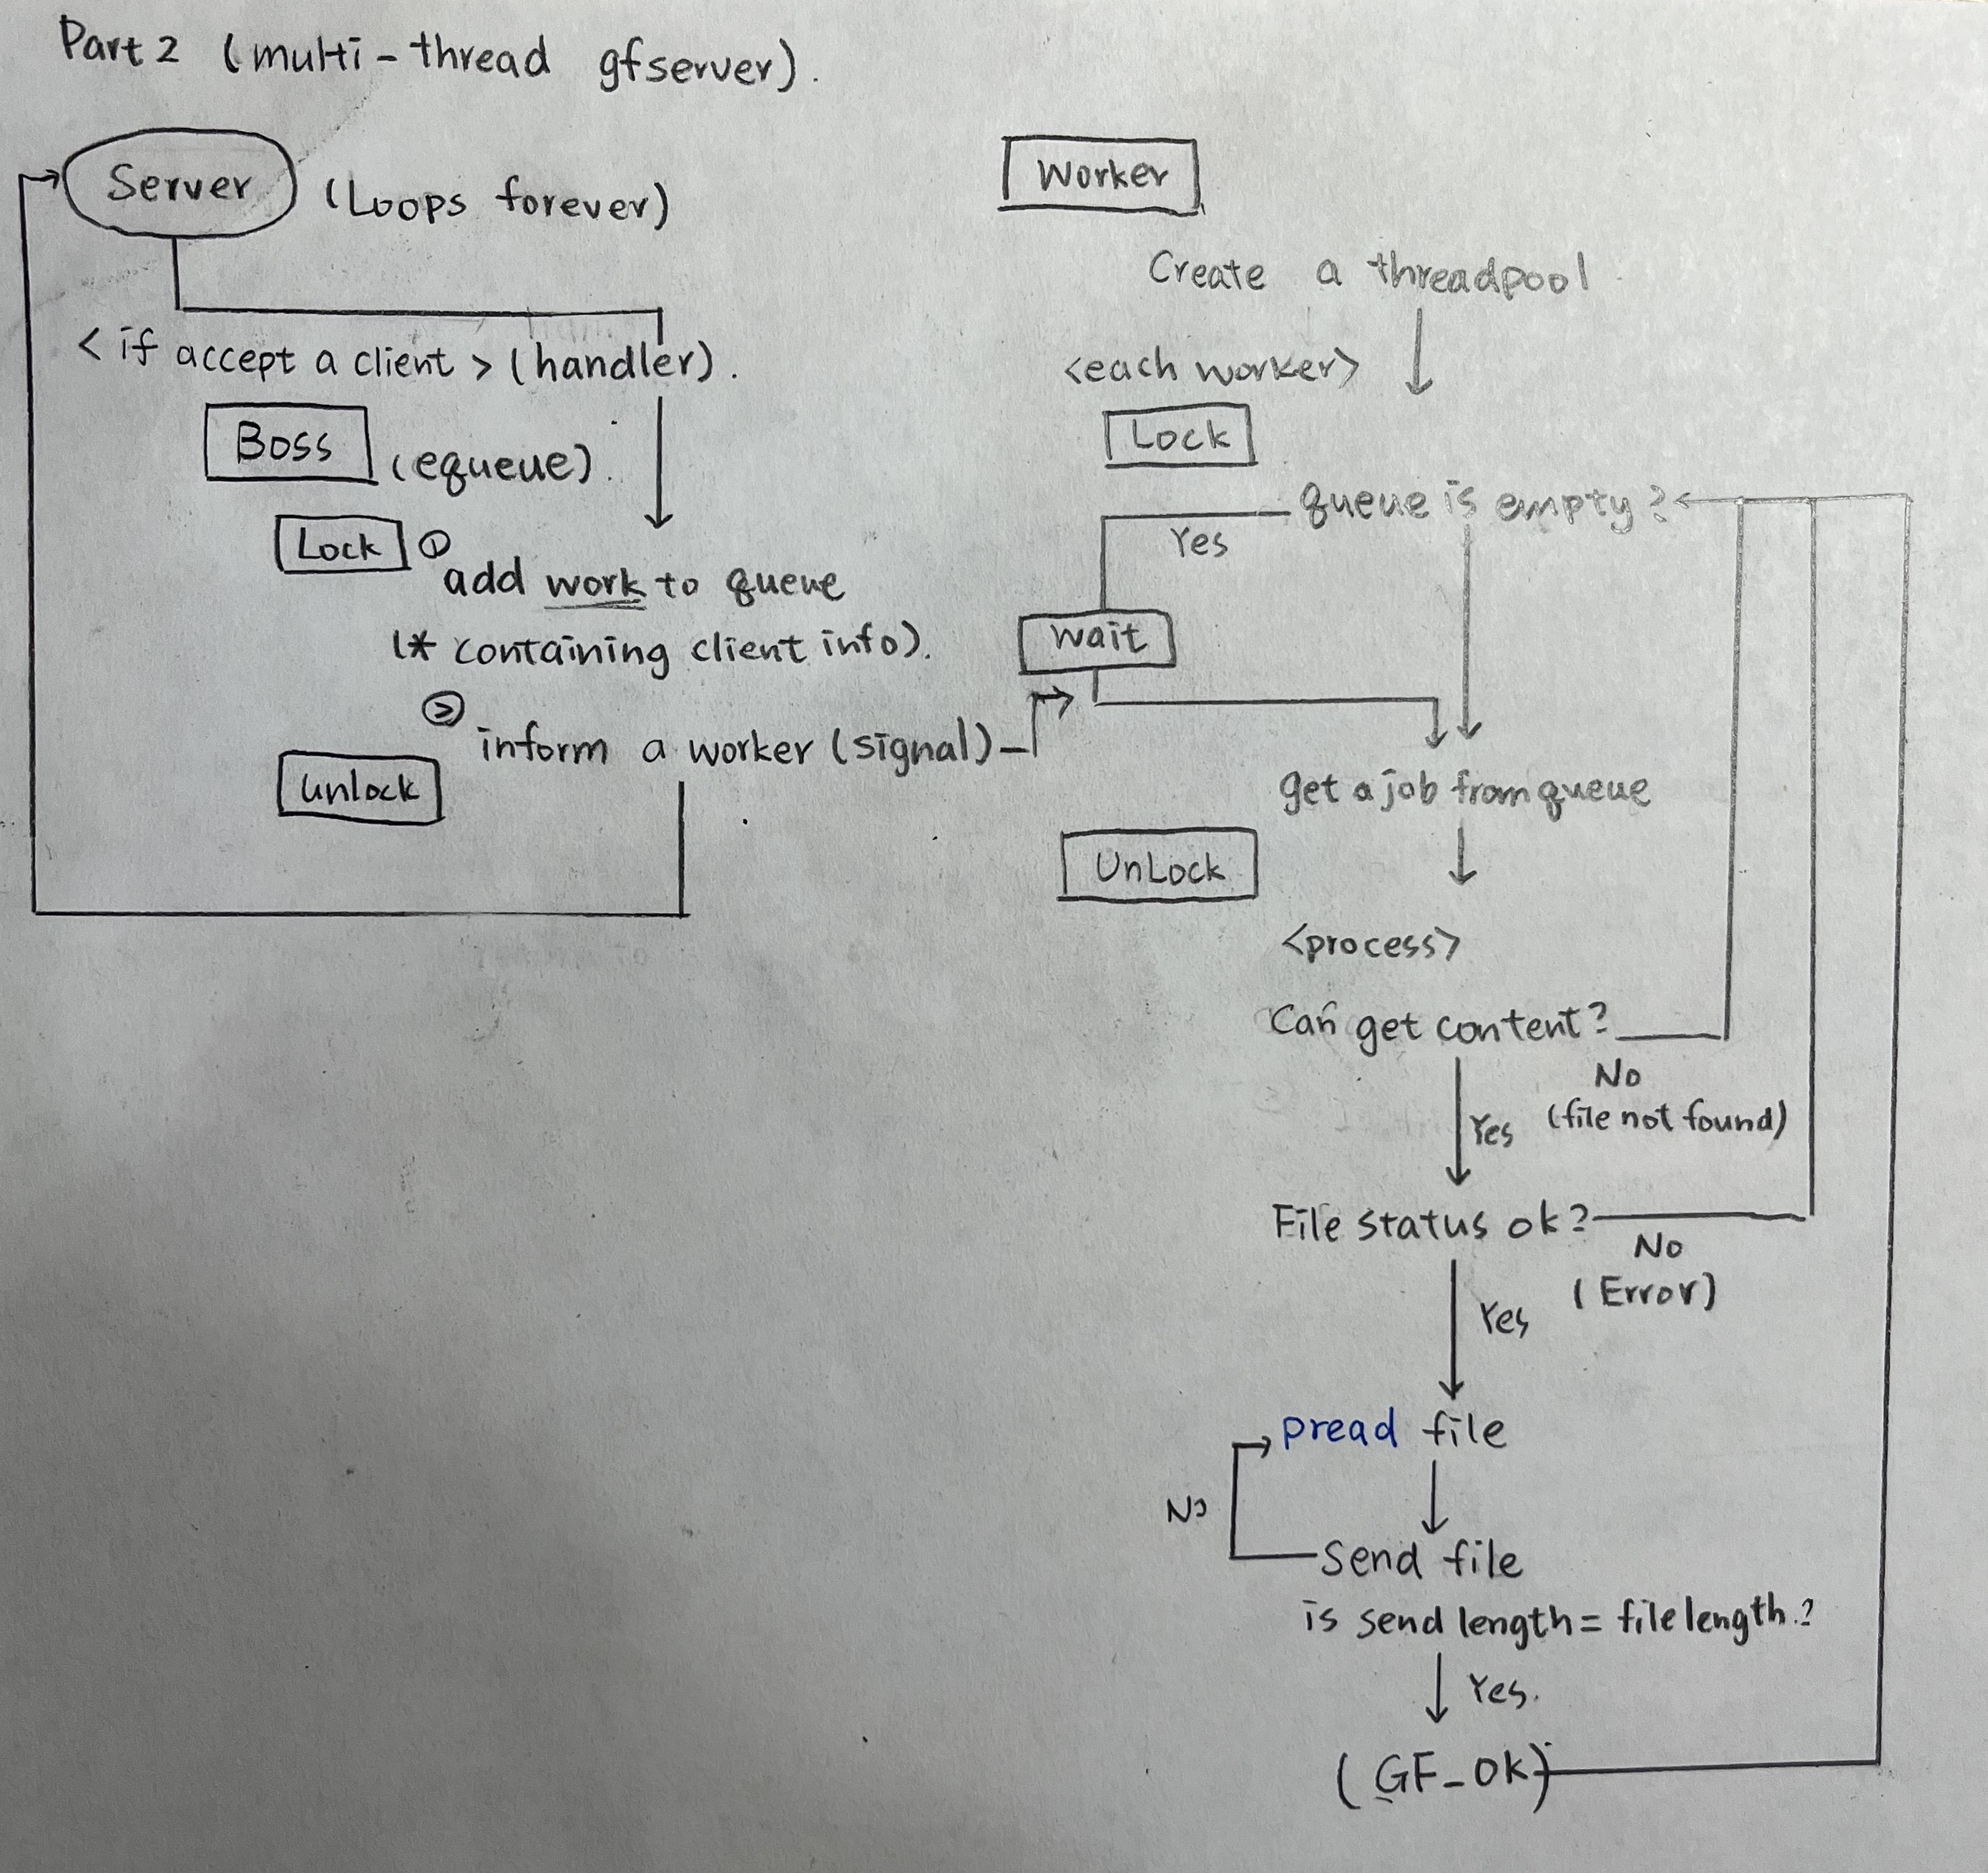 Part 2 (multi-thread gfserver).
Server (Loops forever)
< if accept a client > (handler).
Boss (equeue).
Lock ①
add work to queue
(* containing client info).
②
inform a worker (signal)
unlock
Worker
Create a threadpool
<each worker>
Lock
queue is empty?
Yes
wait
get a job from queue
UnLock
<process>
Can get content?
No
Yes (file not found)
File status ok?
No
(Error)
Yes
pread file
No
Send file
is send length = file length?
Yes.
(GF_OK)